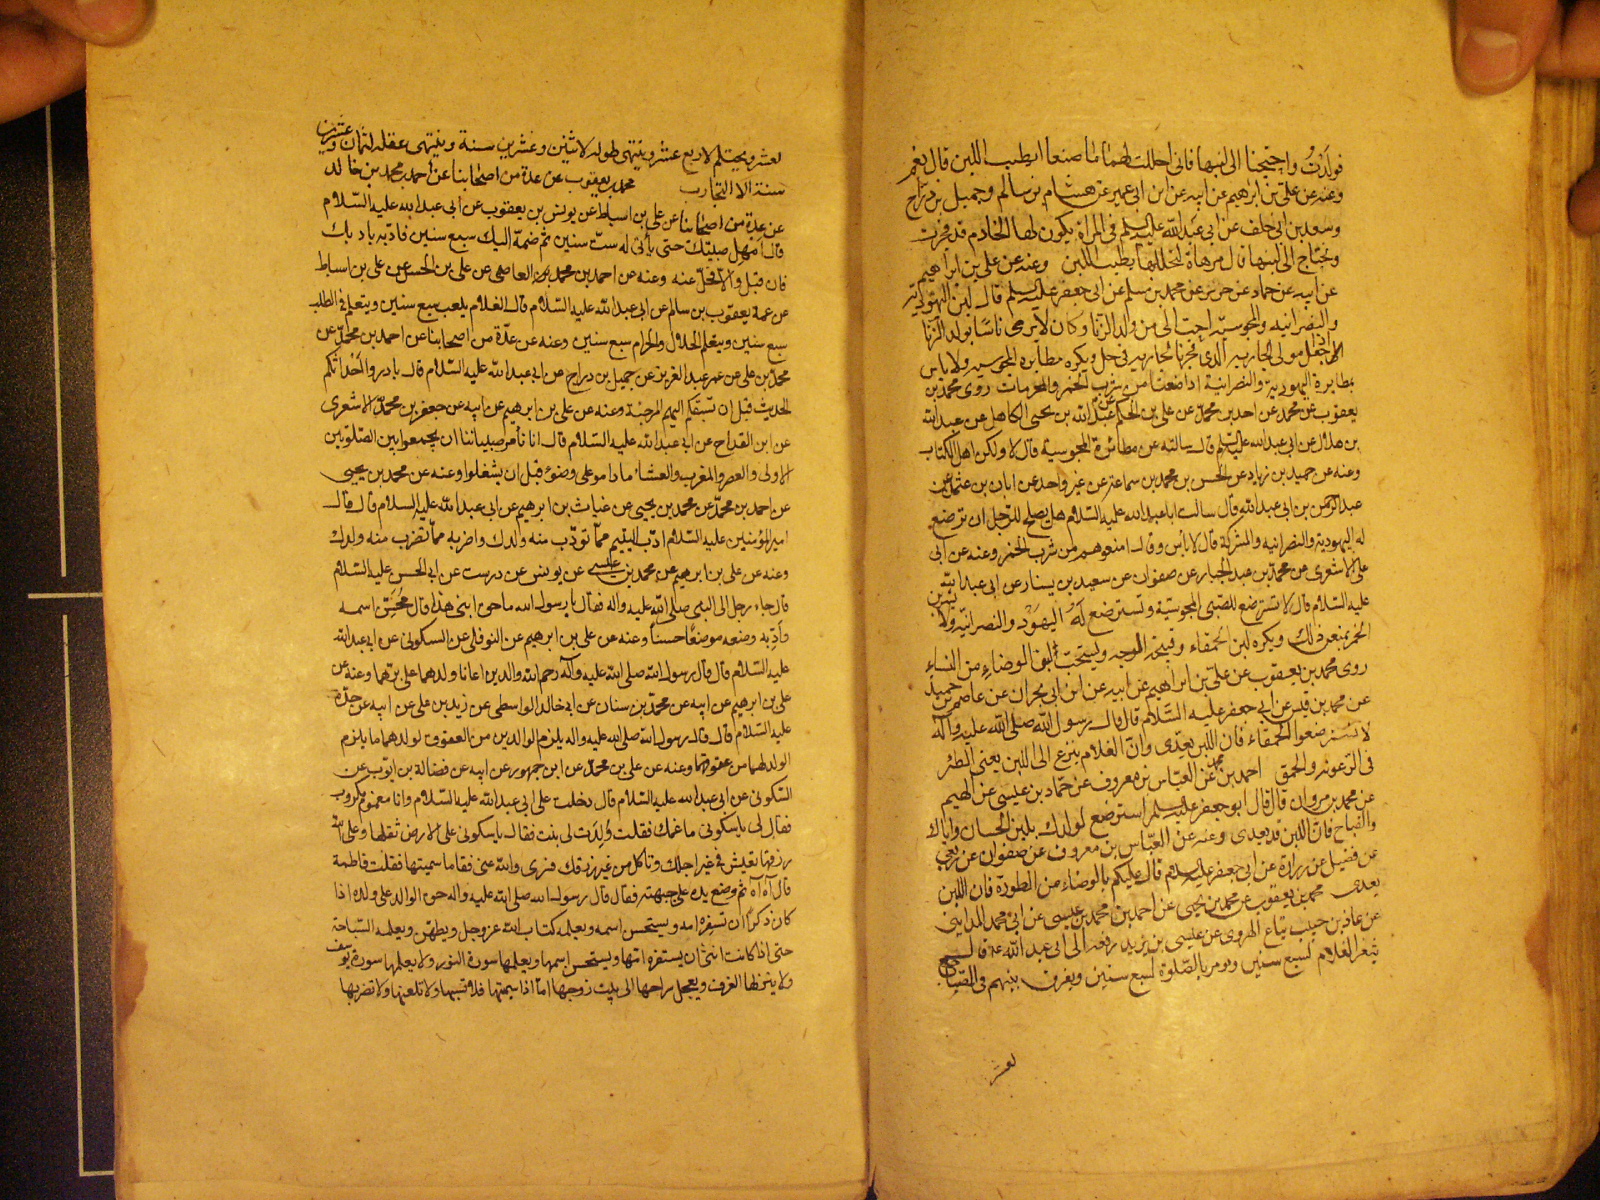 فولدت واحتجنا الى لبنها فانى احللت لهما ما صنعا ايطيب اللبن قال نعم
وعنه عن على بن ابراهيم عن ابيه عن ابن ابى عمير عن هشام بن سالم وجميل بن دراج
وسعد بن ابى خلف عن ابى عبد الله عليه السلم فى المراة يكون لها الخادم قد فجرت
وتحتاج الى لبنها قال مرها فلتحللها يطيب اللبن وعنه عن على بن ابراهيم
عن ابيه عن حماد عن حريز عن محمد بن مسلم عن ابى جعفر عليه السلم قال لبن اليهودية
والنصرانيه والمجوسيه احب الى من ولد الزنا وكان لا يرى باسا بولد الزنا
اذا جعل مولى الجاريه الذى فجر بالجاريه فى حل ويكره مظايره المجوسيه ولا باس
بمظايرة اليهودية والنصرانية اذا منعتا من شرب الخمر والمحرمات روى محمد بن
يعقوب عن محمد عن احمد بن محمد عن على بن الحكم عن عبد الله بن يحيى الكاهلى عن عبد الله
بن هلال عن ابى عبد الله عليه السلم قال سالته عن مظائرة المجوسية قال لا ولكن اهل الكتاب
وعنه عن حميد بن زياد عن الحسن بن محمد بن سماعة عن غير واحد عن ابان بن عثمن عن
عبد الرحمن بن ابى عبد الله قال سالت ابا عبد الله عليه السلام هل يصلح للرجل ان ترضع
له اليهودية والنصرانيه والمشركة قال لا باس وقال امنعوهم من شرب الخمر وعنه عن ابى
على الاشعرى عن محمد بن عبد الجبار عن صفوان عن سعيد بن يسار عن ابى عبد الله
عليه السلام قال لا تسترضع للصبى المجوسية وتسترضع له اليهود والنصرانيه ولا يشربن
الخمر يمنعن ذلك ويكره لبن الحمقاء وقبيحة الوجه ويستحب لبن الوضاء من النساء
روى محمد بن يعقوب عن على بن ابراهيم عن ابيه عن ابن ابى نجران عن عاصم بن حميد
عن محمد بن قيس عن ابى جعفر عليه السلام قال قال رسول الله صلى الله عليه وآله
لا تسترضعوا الحمقاء فان اللبن يعدى وان الغلام ينزع الى اللبن يعنى الظئر
فى الرعونه والحمق احمد بن محمد عن العباس بن معروف عن حماد بن عيسى عن الهيثم
عن محمد بن مروان قال قال ابو جعفر عليه السلم استرضع لولدك بلبن الحسان واياك
والقباح فان اللبن قد يعدى وعنه عن العباس بن معروف عن صفوان عن ربعى
عن فضيل عن زرارة عن ابى جعفر عليه السلام قال عليكم بالوضاء من الظورة فان اللبن
يعدى محمد بن يعقوب عن محمد بن يحيى عن احمد بن محمد بن عيسى عن ابى محمد المداينى
عن عاذ بن حبيب بياع الهروى عن عيسى بن يزيد رفعه الى ابى عبد الله قال
يثغر الغلام لسبع سنين ويومر بالصلوة لسبع سنين ويفرق بينهم فى المضاجع
لعشر
لعشر ويحتلم لاربع عشر وينتهى طوله لاثنين وعشرين سنة وينتهى عقله لثمان وعشرين
سنة الا التجارب محمد بن يعقوب عن عدة من اصحابنا عن احمد بن محمد بن خالد
عن عدة من اصحابنا عن على بن اسباط عن يونس بن يعقوب عن ابى عبد الله عليه السلام
قال امهل صبيك حتى يأتى له ست سنين ثم ضمه اليك سبع سنين فادبه بادبك
فان قبل والا فخل عنه وعنه عن احمد بن محمد العاصمى عن على بن الحسن عن على بن اسباط
عن عمه يعقوب بن سالم عن ابى عبد الله عليه السلام قال الغلام يلعب سبع سنين ويتعلم فى الكتاب
سبع سنين ويتعلم الحلال والحرام سبع سنين وعنه عن عدة من اصحابنا عن احمد بن محمد عن
محمد بن على عن عمر بن عبد العزيز عن جميل بن دراج عن ابى عبد الله عليه السلام قال بادروا احداثكم
الحديث قبل ان تسبقكم اليهم المرجئة وعنه عن على بن ابرهيم عن ابيه عن جعفر بن محمد الاشعرى
عن ابن القداح عن ابى عبد الله عليه السلام قال انا نأمر صبياننا ان يجمعوا بين الصلوتين
الاولى والعصر والمغرب والعشاء ما داموا على وضوء قبل ان يشغلوا وعنه عن محمد بن يحيى
عن احمد بن محمد عن محمد بن يحيى عن غياث بن ابرهيم عن ابى عبد الله عليه السلام قال قال
امير المؤمنين عليه السلام ادب اليتيم مما تؤدب منه ولدك واضربه مما تضرب منه ولدك
وعنه عن على بن ابرهيم عن محمد بن عيسى عن يونس عن درست عن ابى الحسن عليه السلام
قال جاء رجل الى النبى صلى الله عليه واله فقال يا رسول الله ما حق ابنى هذا قال تحسن اسمه
وادبه وضعه موضعا حسنا وعنه عن على بن ابرهيم عن النوفلى عن السكونى عن ابى عبد الله
عليه السلام قال قال رسول الله صلى الله عليه وآله رحم الله والدين اعانا ولدهما على برهما وعنه عن
على بن ابرهيم عن ابيه عن محمد بن سنان عن ابى خالد الواسطى عن زيد بن على عن ابيه عن جده
عليه السلام قال قال رسول الله صلى الله عليه واله يلزم الوالدين من العقوق لولدهما ما يلزم
الولد لهما من عقوقهما وعنه عن على بن محمد عن ابن جمهور عن ابيه عن فضالة بن ايوب عن
السكونى عن ابى عبد الله عليه السلام قال دخلت على ابى عبد الله عليه السلام وانا مغموم مكروب
فقال لى يا سكونى ما غمك فقلت ولدت لى بنت فقال يا سكونى على الارض ثقلها وعلى الله
رزقها تعيش فى غير اجلك وتاكل من غير رزقك فسرى والله عنى فقال ما سميتها فقلت فاطمة
قال آه آه ثم وضع يده على جبهته فقال قال رسول الله صلى الله عليه واله حق الوالد على ولده اذا
كان ذكرا ان تستفره امه ويستحسن اسمه ويعلمه كتاب الله عز وجل ويطهره ويعلمه السباحة
حتى اذا كانت انثى ان يستفره امها ويستحسن اسمها ويعلمها سورة النور ولا يعلمها سورة يوسف
ولا ينزلها الغرف ويعجل سراحها الى بيت زوجها اما اذا سميتها فلا تسبها ولا تلعنها ولا تضربها